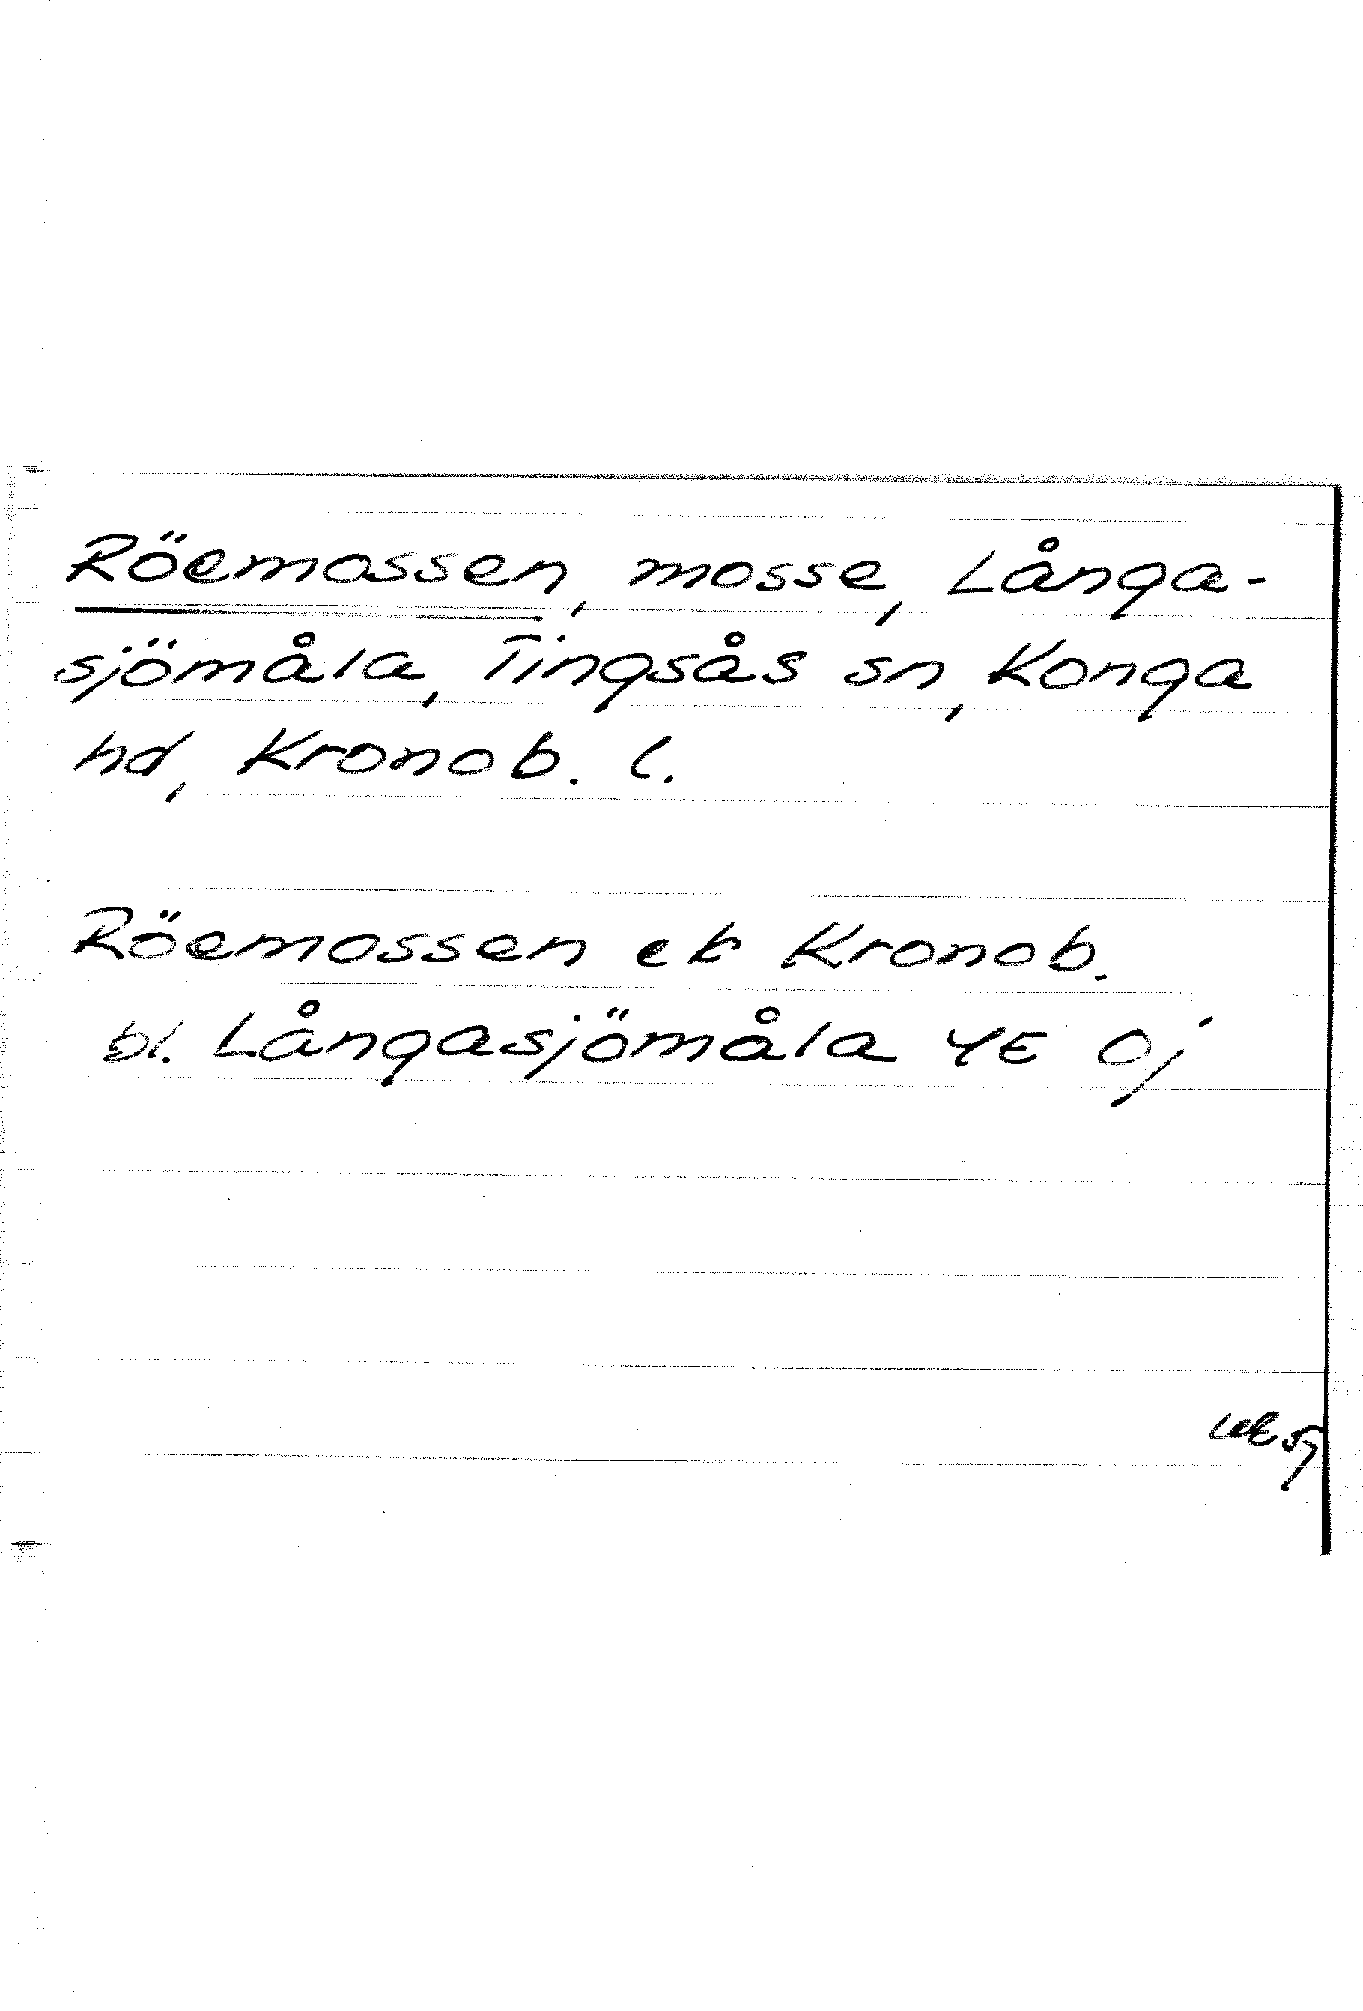 Röemossen, mosse, Långa-
sjömåla, Tingsås sn, Konga
hd, Kronob. l.
Röemossen ek Kronob.
bl. Långasjömåla 4E Oj